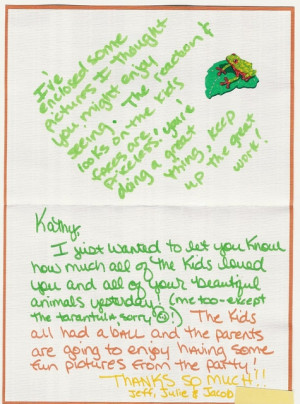 I've
enclosed some
pictures I thought
you might enjoy
seeing. The reaction &
looks on the kids
faces are
priceless! You're
doing a great
thing, keep
up the great
work!
Kathy,
I just wanted to let you know
how much all of the kids loved
you and all of your beautiful
animals yesterday! (me too - except
the tarantula, sorry ☹!) The kids
all had a ball and the parents
are going to enjoy having some
fun pictures from the party!
THANKS SO MUCH!!
Jeff, Julie & Jacob